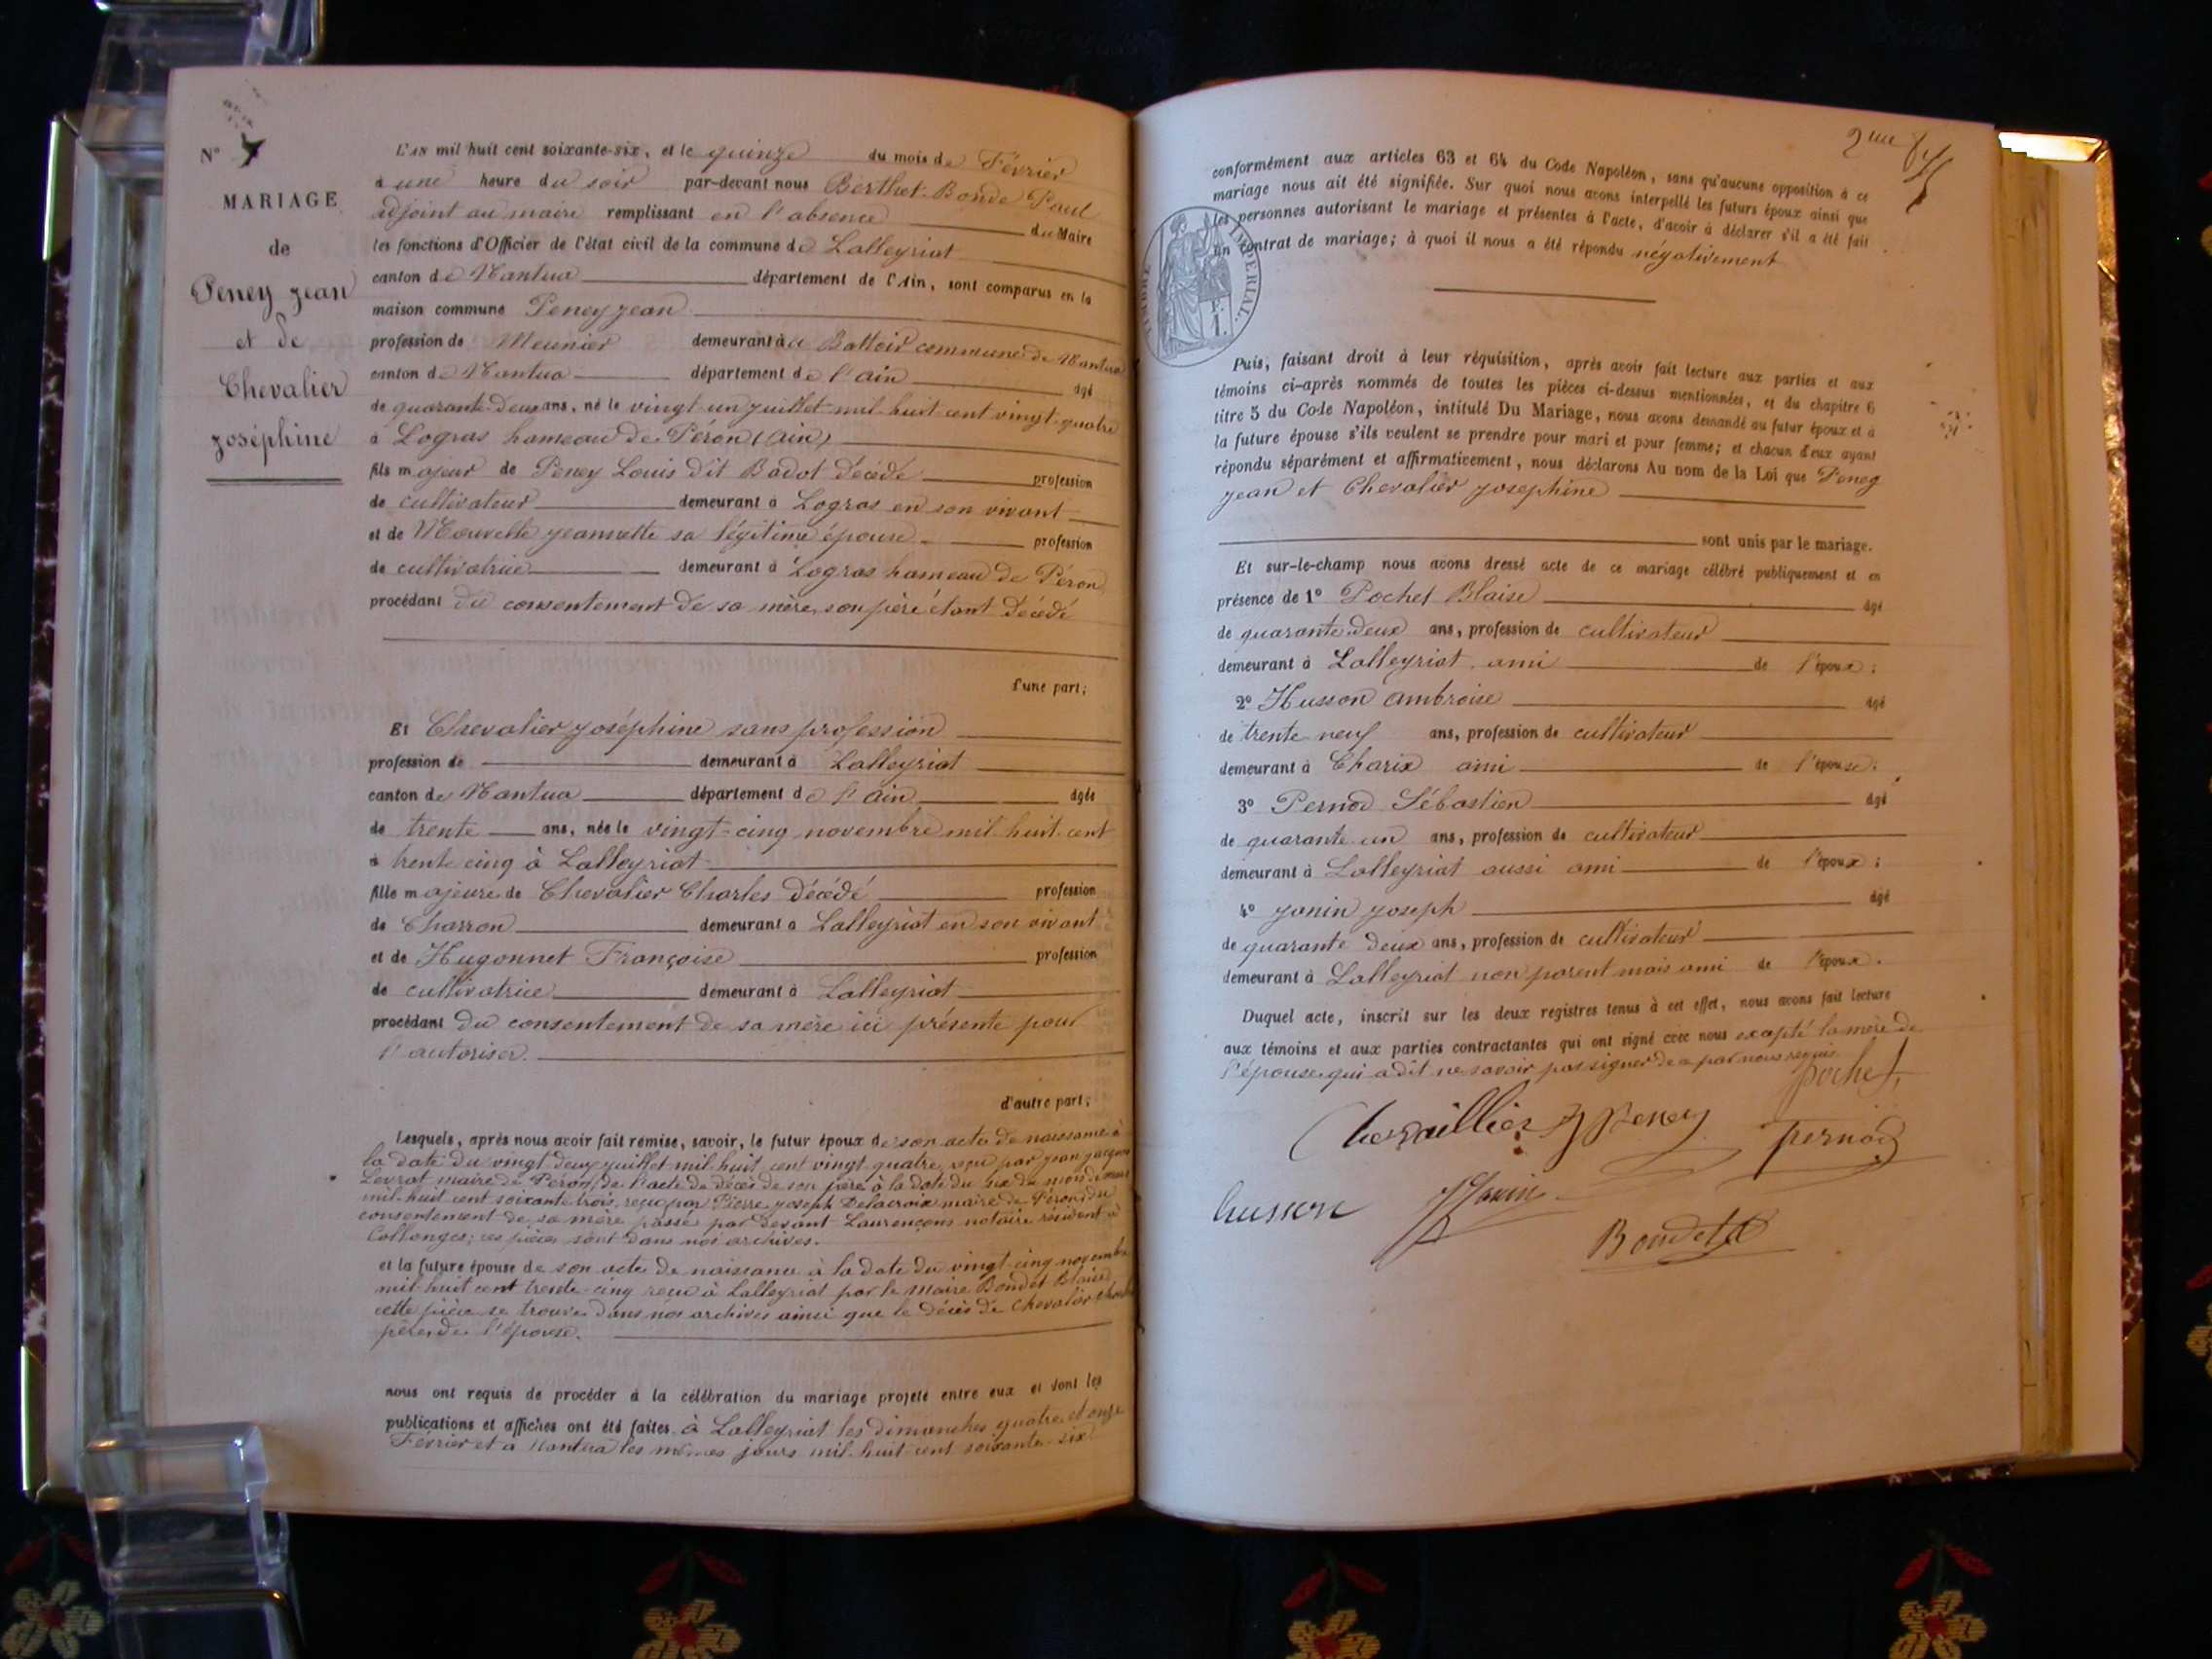 N°
MARIAGE
de
Peney Jean
et de
Chevalier
Joséphine
L'AN mil huit cent soixante-six, et le quinze du mois de Février
à une heure du soir par-devant nous Berthet-Bonde Paul
adjoint au maire remplissant en l'absence du Maire
les fonctions d'Officier de l'état civil de la commune de Lalleyriat
canton de Nantua département de l'Ain, sont comparus en la
maison commune Peney Jean
profession de Meunier demeurant à u Battoir commune de Nantua
canton de Nantua département de l'ain âgé
de quarante-deux ans, né le vingt un juillet mil huit cent vingt quatre
à Logras hameau de Péron (ain)
fils majeur de Peney Louis dit Badot décédé profession
de cultivateur demeurant à Logras en son vivant
et de Nouvelle jeannette sa légitime épouse profession
de cultivatrice demeurant à Logras hameau de Péron
procédant du consentement de sa mère, son père étant décédé
d'une part;
Et Chevalier Joséphine sans profession
profession de demeurant à Lalleyriat
canton de Nantua département de l'ain âgée
de trente ans, née le vingt-cinq novembre mil huit cent
à trente cinq à Lalleyriat
fille majeure de Chevalier Charles décédé profession
de Charron demeurant à Lalleyriat en son vivant
et de Hugonnet Françoise profession
de cultivatrice demeurant à Lalleyriat
procédant du consentement de sa mère ici présente pour
l'autoriser.
d'autre part;
Lesquels, après nous avoir fait remise, savoir, le futur époux de son acte de naissance à
la date du vingt deux juillet mil huit cent vingt quatre, reçu par jean jacques
Levrat maire de Péron, de l'acte de décès de son père à la date du six du mois de mars
mil huit cent soixante trois, reçu par Pierre joseph Delacroix maire de Péron, du
consentement de sa mère passé par devant Laurençons notaire résident à
Collonges; ces pièces sont dans nos archives.
et la future épouse de son acte de naissance à la date du vingt-cinq novembre
mil huit cent trente-cinq reçu à Lalleyriat par le Maire Bondet Blaise
cette pièce se trouve dans nos archives ainsi que le décès de Chevalier Charles
père de l'épouse.
nous ont requis de procéder à la célébration du mariage projeté entre eux et dont les
publications et affiches ont été faites à Lalleyriat les dimanches quatre et onze
Février et a Nantua les mêmes jours mil huit cent soixante-six
2me
conformément aux articles 63 et 64 du Code Napoléon, sans qu'aucune opposition à ce
mariage nous ait été signifiée. Sur quoi nous avons interpellé les futurs époux ainsi que
les personnes autorisant le mariage et présentes à l'acte, d'avoir à déclarer s'il a été fait
un contrat de mariage; à quoi il nous a été répondu négativement
TIMBRE IMPERIAL.
F.
1.
Puis, faisant droit à leur réquisition, après avoir fait lecture aux parties et aux
témoins ci-après nommés de toutes les pièces ci-dessus mentionnées, et du chapitre 6
titre 5 du Code Napoléon, intitulé Du Mariage, nous avons demandé au futur époux et à
la future épouse s'ils veulent se prendre pour mari et pour femme; et chacun d'eux ayant
répondu séparément et affirmativement, nous déclarons Au nom de la Loi que Peney
jean et Chevalier josephine
sont unis par le mariage.
Et sur-le-champ nous avons dressé acte de ce mariage célébré publiquement et en
présence de 1° Pochet Blaise âgé
de quarante deux ans, profession de cultivateur
demeurant à Lalleyriat ami de l'époux;
2° Husson ambroise âgé
de trente neuf ans, profession de cultivateur
demeurant à Charix ami de l'épouse;
3° Pernod Sébastien âgé
de quarante un ans, profession de cultivateur
demeurant à Lalleyriat aussi ami de l'époux;
4° janin joseph âgé
de quarante deux ans, profession de cultivateur
demeurant à Lalleyriat non parent mais ami de l'époux.
Duquel acte, inscrit sur les deux registres tenus à cet effet, nous avons fait lecture
aux témoins et aux parties contractantes qui ont signé avec nous excepté la mère de
l'épouse qui a dit ne savoir pas signer de ce par nous requis.
Pochet
Chevaillier J Peney
Pernod
husson J Janin
Bondet